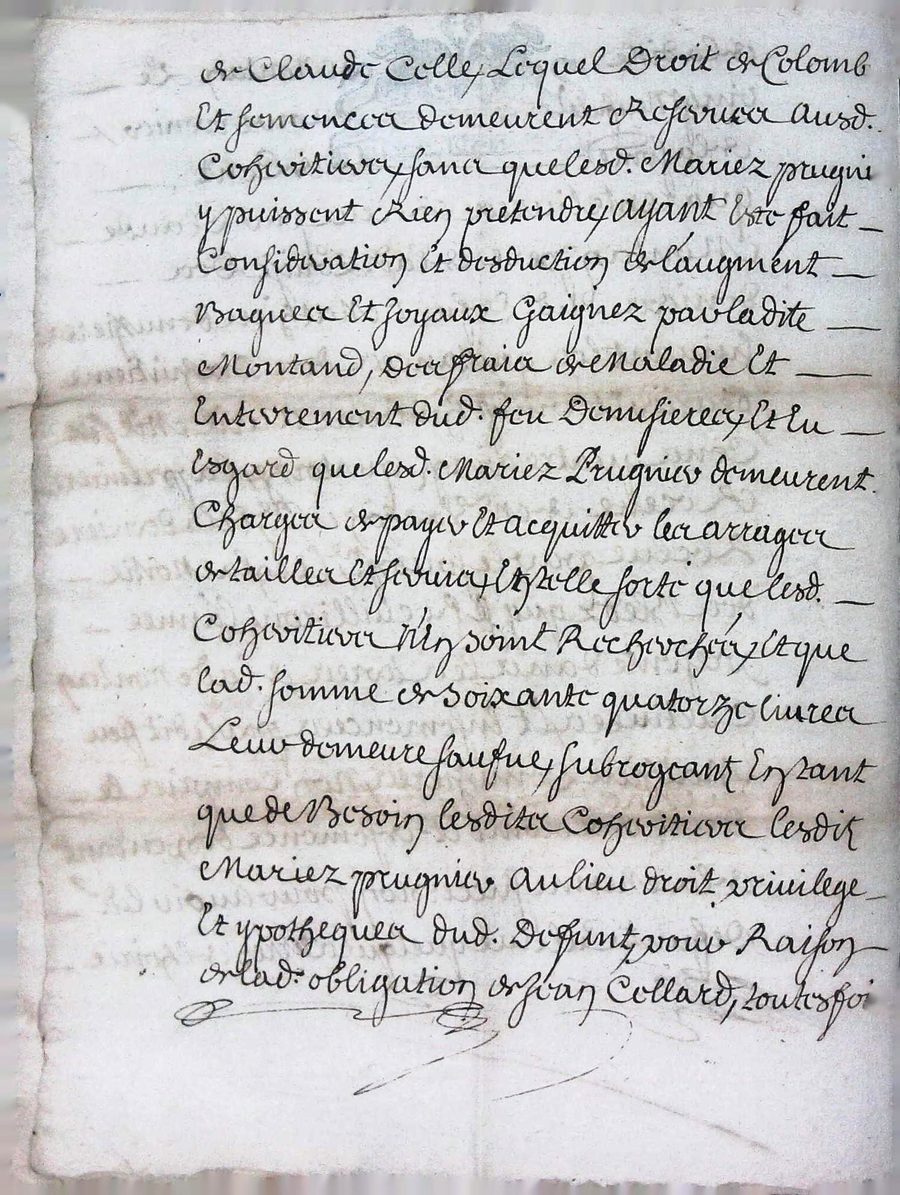 de Claude Celle, Lequel Droit de Colomb
Et semences demeurent Reservez ausd.
Coheritiers, sans que lesd. Mariez prugni
y puissent Rien pretendre, ayant Este fait
Consideration Et desduction de l'augment
Bagues Et Joyaux Gaignez par ladite
Montand, des frais de Maladie Et
Enterrement dud. feu Denusieres, Et Eu
Esgard que lesd. Mariez Prugnier demeurent
Charges de payer Et acquitter les arrages
de tailles Et servis, Et telle sorte que lesd.
Coheritiers n'En soint Recherchés, Et que
lad. somme de soixante quatorze livres
Leur demeure saufue, subrogeant En tant
que de Besoin lesdits Coheritiers lesdit
Mariez prugnier au lieu droit privilege
Et ypotheques dud. Defunt, pour Raison
de lad. obligation de Jean Collard, toutesfoi